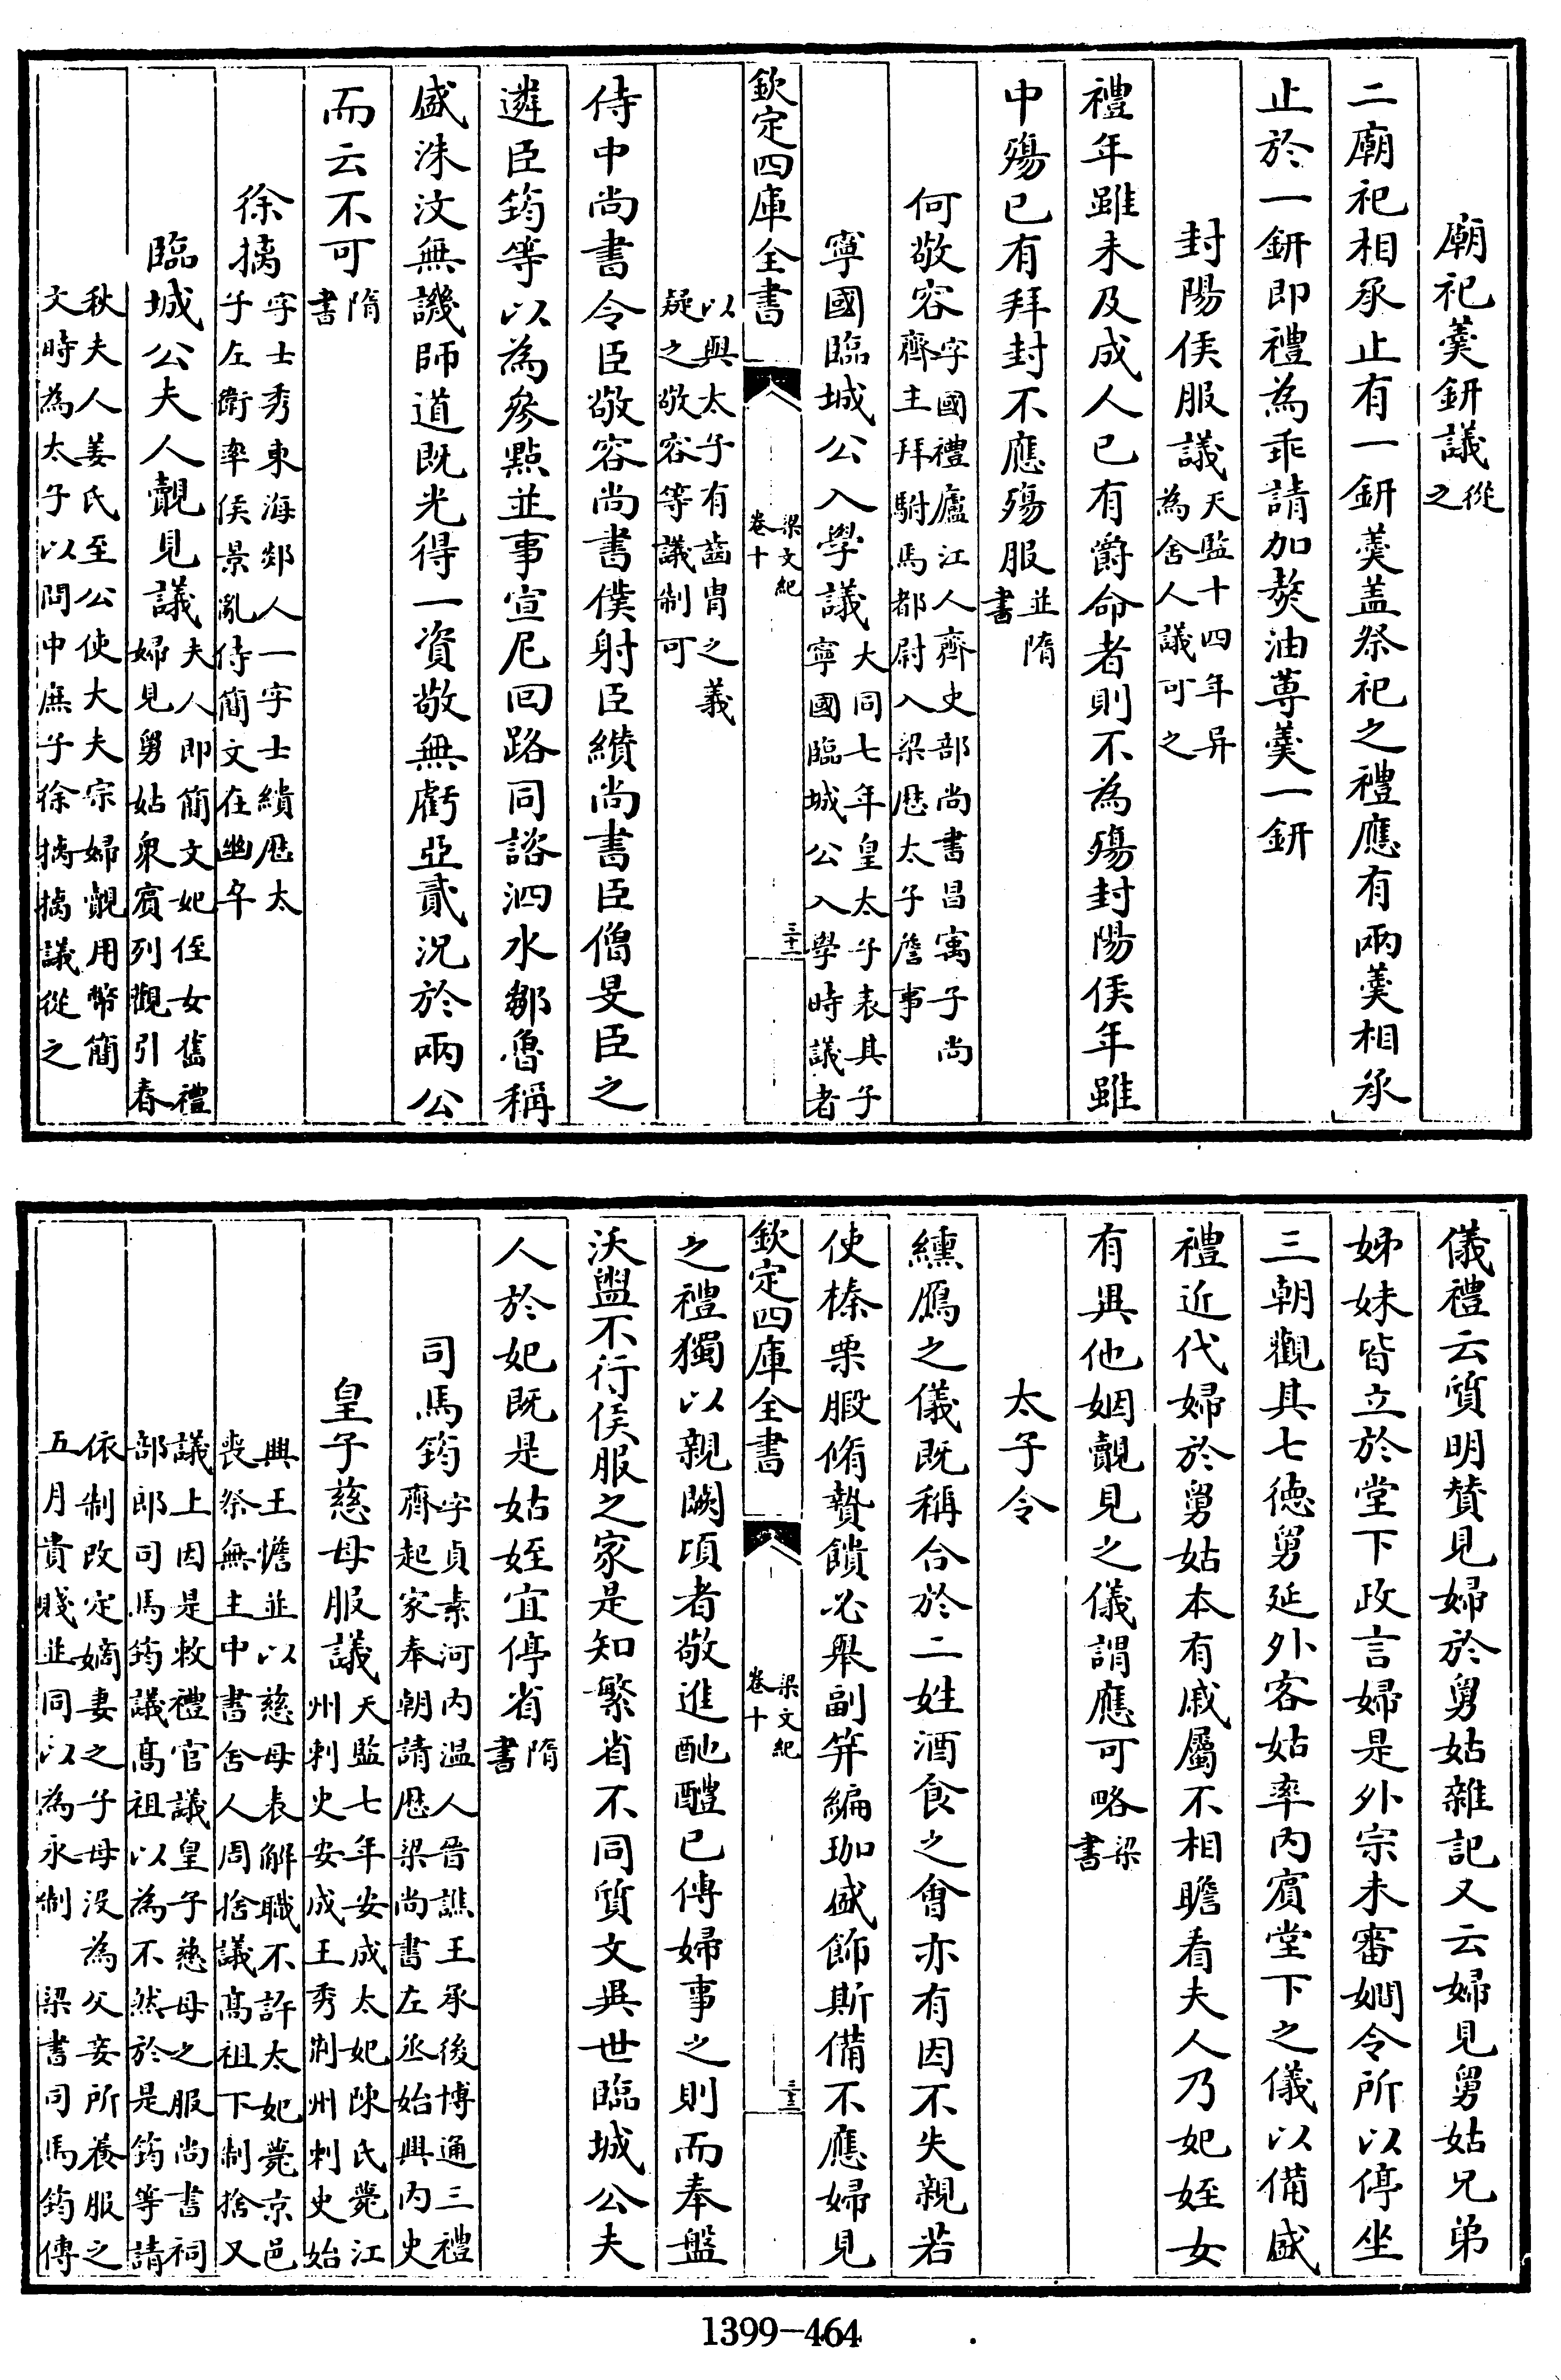 廟祀羹鈃議從之
二廟祀相承止有一鈃羹盖祭祀之禮應有兩羹相承
止於一鈃即禮為乖請加熬油蓴羹一鈃
封陽侯服議天監十四年异為舍人議可之
禮年雖未及成人已有爵命者則不為殤封陽侯年雖
中殤已有拜封不應殤服並隋書
何敬容字國禮廬江人齊吏部尚書昌㝢子尚齊主拜駙馬都尉入梁厯太子詹事
寧國臨城公入學議大同七年皇太子表其子寧國臨城公入學時議者
欽定四庫全書
梁文紀
卷十
三十二
以與太子有齒胄之義疑之敬容等議制可
侍中尚書令臣敬容尚書僕射臣纘尚書臣僧旻臣之
遴臣筠等以為參點並事宣尼回路同諮泗水鄒魯稱
盛洙汶無譏師道既光得一資敬無虧亞貳況於兩公
而云不可隋書
徐摛字士秀東海郯人一字士繢厯太子左衛率侯景亂侍簡文在幽卒
臨城公夫人覿見議夫人即簡文妃侄女舊禮婦見舅姑衆賓列觀引春
秋夫人姜氏至公使大夫宗婦覿用幣簡文時為太子以問中庶子徐摛摛議從之
儀禮云質明賛見婦於舅姑雜記又云婦見舅姑兄弟
姊妹皆立於堂下政言婦是外宗未審嫺令所以停坐
三朝觀其七德舅延外客姑率内賓堂下之儀以備盛
禮近代婦於舅姑本有戚屬不相瞻看夫人乃妃姪女
有異他姻覿見之儀謂應可略梁書
太子令
纁鴈之儀既稱合於二姓酒食之會亦有因不失親若
使榛栗腶脩贄饋必舉副笄編珈盛飾斯備不應婦見
欽定四庫全書
梁文紀
卷十
三十三
之禮獨以親闕頃者敬進酏醴已傳婦事之則而奉盤
沃盥不行侯服之家是知繁省不同質文異世臨城公夫
人於妃既是姑姪宜停省隋書
司馬筠字貞素河内温人晉譙王承後博通三禮齊起家奉朝請厯梁尚書左丞始興内史
皇子慈母服議天監七年安成太妃陳氏薨江州刺史安成王秀荆州刺史始
興王憺並以慈母表解職不許太妃薨京邑喪祭無主中書舍人周捨議髙祖下制捨又
議上因是敕禮官議皇子慈母之服尚書祠部郎司馬筠議髙祖以為不然於是筠等請
依制改定嫡妻之子母没為父妾所養服之五月貴賤並同以為永制　梁書司馬筠傳
1399-464